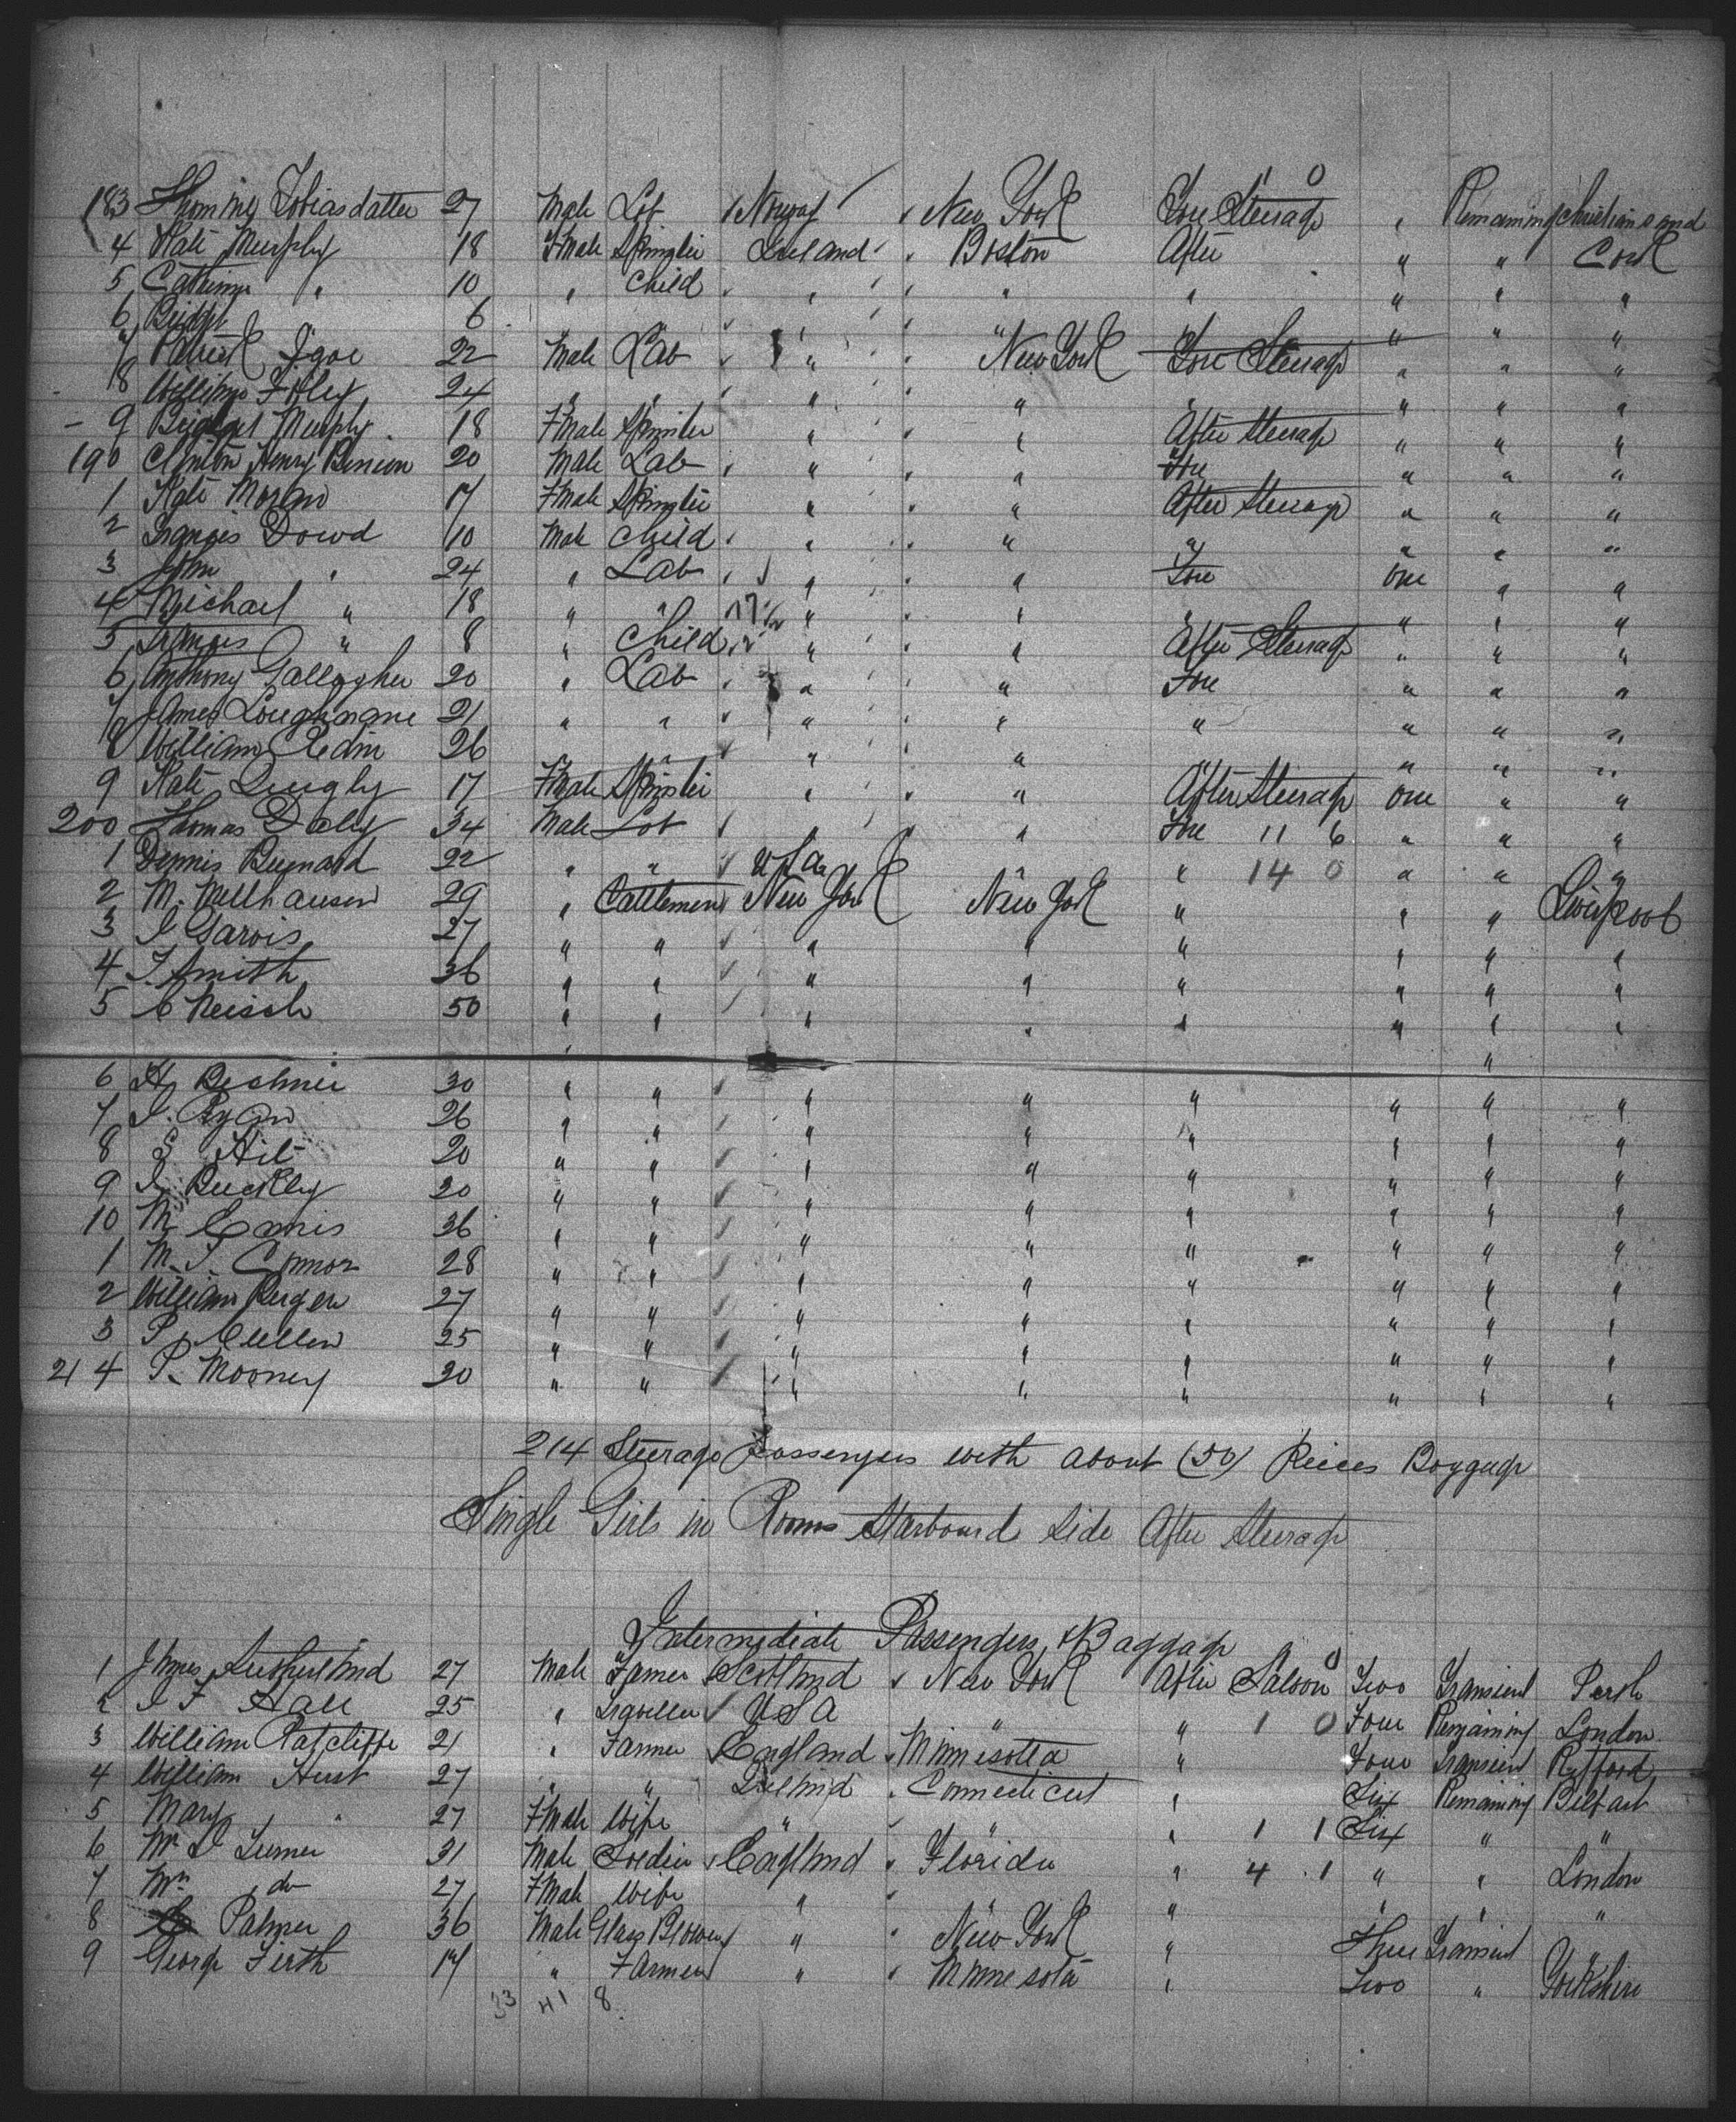 183 Thomine Tobiasdatter 27 Male Lab Norway New York Fore Steerage " Remaining Christiansand
4 Kate Murphy 18 Fmale Spinster Ireland " Boston After " " Cork
5 Cathrine " 10 " Child " " " " " "
6 Bridget 6 " " " " " " " "
7 Patrick Igoe 22 Male Lab " New York Fore Steerage " " "
8 William Foley 24 " " " " " " " "
9 Bridget Murphy 18 Fmale Spinster " " After Steerage " " "
190 Clinton Henry Benson 20 Male Lab " " Fore " " "
1 Kate Moran 17 Fmale Spinster " " After Steerage " " "
2 Francis Dowd 10 Male Child " " " " " "
3 John " 24 " Lab " " Fore One " "
4 Michael " 18 " " " " " " " "
5 Francis " 8 " Child " " After Steerage " " "
6 Anthony Gallagher 20 " Lab " " Fore " " "
7 James Loughnane 21 " " " " " " " "
8 William Redin 26 " " " " " " " "
9 Kate Quigly 17 Fmale Spinster " " After Steerage One " "
200 Thomas Daly 34 Male Lab " " Fore 11 6 " " "
1 Dennis 22 " " U S a " " 14 0 " " "
2 M. Mellhausen 29 " Cattlemen New York New York " " " Liverpool
3 J Garvis 27 " " " " " " " "
4 J. Smith 36 " " " " " " " "
5 C Neisch 50 " " " " " " " "
6 H Bechner 30 " " " " " " " "
7 J. Ryan 26 " " " " " " " "
8 S Hil 20 " " " " " " " "
9 J Buckley 20 " " " " " " " "
10 M Ennis 36 " " " " " " " "
1 M. J. Connor 28 " " " " " " " "
2 William Ruger 27 " " " " " " " "
3 P. Cullen 25 " " " " " " " "
214 P. Mooney 20 " " " " " " " "
214 Steerage Passengers with about (50) Pieces Baggage
Single Girls in Rooms Starboard Side After Steerage
Intermediate Passengers & Baggage
1 James Sutherland 27 Male Farmer Scotland New York After Saloon Two Transient Perth
2 J F Hall 25 " Traveller U S A " " 1 0 Four Remaining London
3 William Ratcliffe 21 " Farmer England Minnesotta " Four Transient Retford
4 William Hust 27 " " Ireland Connecticut " Six Remaining Belfast
5 Mary " 27 Fmale Wife " " " 1 1 Six " "
6 Mr D Turner 31 Male England Florida " 4 1 " " London
7 Mrs do 27 Fmale Wife " " " " " "
8 Palmer 36 Male Glass Blower " New York " Three Transient
9 George Firth 17 " Farmer " Minnesota " Two " Yorkshire
33 41 8